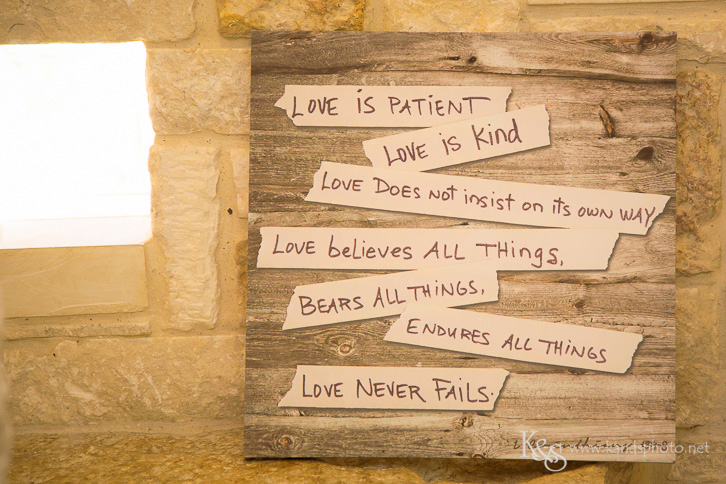 LOVE is PATIENT
LOVE is Kind
LOVE DOES not insist on its own WAY
LOVE believes ALL THings,
BEARS ALL THINGS,
ENDURES ALL THINGS
LOVE NEVER FAILS.
K&S www.kandsphoto.net